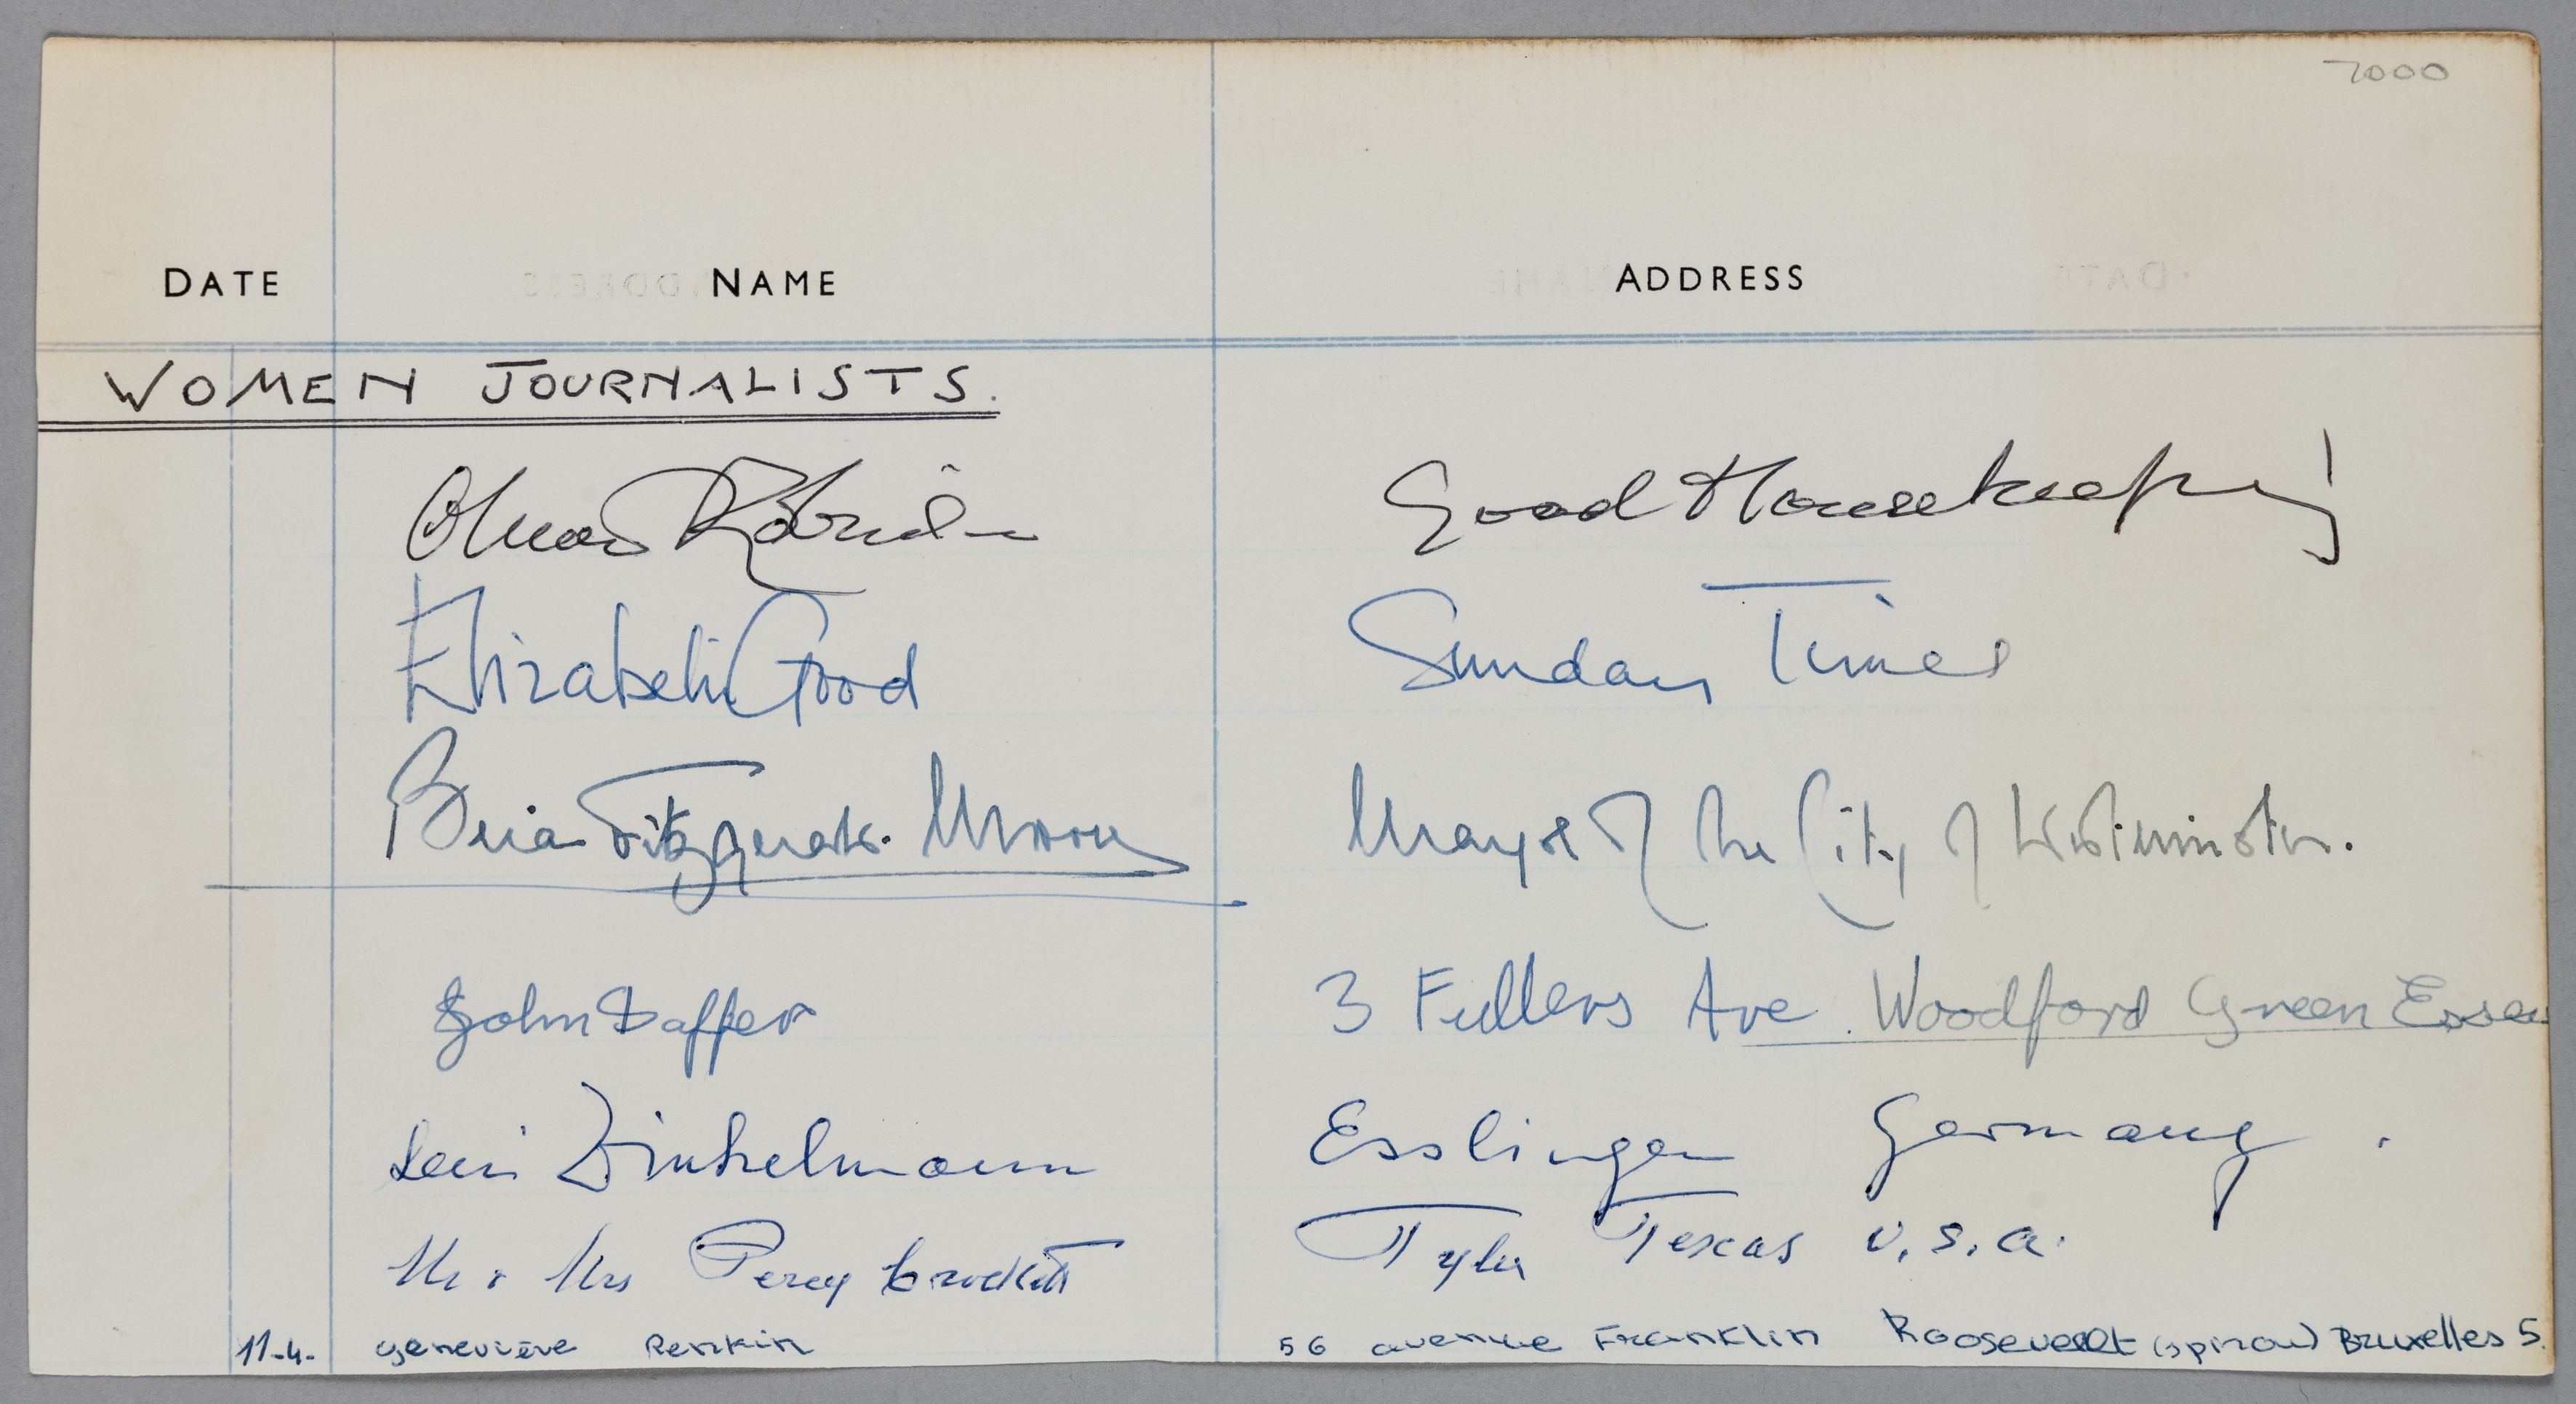 7000
DATE NAME ADDRESS
WOMEN JOURNALISTS.
Robinson Good Housekeeping
Elizabeth Good Sunday Times
Brian Fitzgerald-Moore Mayor of the City of Westminster.
John Daffer 3 Fullers Ave. Woodford Green Essex
Dinkelmann Esslingen Germany.
Mr & Mrs Percy Crockett Tyler Texas U.S.A.
11-4- Geneviève Renkin 56 avenue Franklin Roosevelt (spirou) Bruxelles 5.